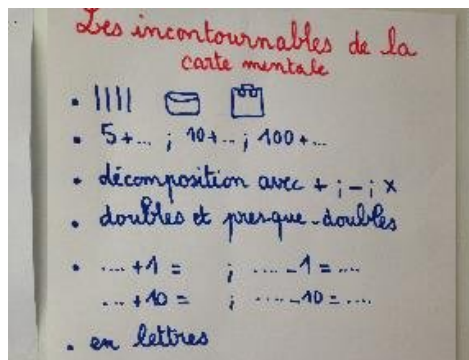 Les incontournables de la
carte mentale
5+... ; 10+... ; 100+...
décomposition avec + ; - ; ×
doubles et presque-doubles
.... +1 = ; .... -1 = ....
... +10 = ; .... -10 = ....
en lettres